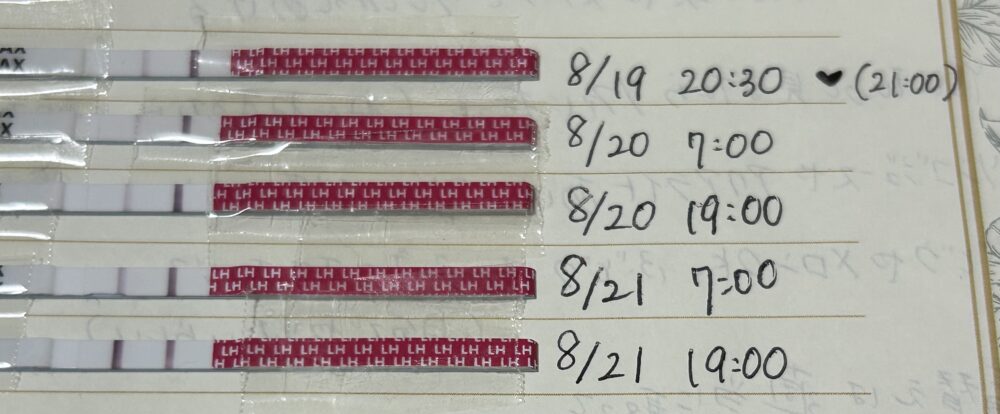 AX
LH LH LH LH LH LH LH LH LH LH LH LH
8/19 20:30 ♥ (21:00)
X
LH LH LH LH LH LH LH LH LH LH LH LH
8/20 7:00
LH LH LH LH LH LH LH LH LH LH LH LH
8/20 19:00
LH LH LH LH LH LH LH LH LH LH LH LH
8/21 7:00
LH LH LH LH LH LH LH LH LH LH LH LH
8/21 19:00